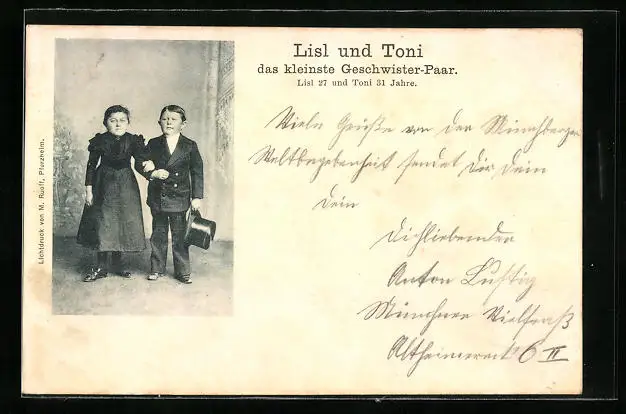 Lisl und Toni
das kleinste Geschwister-Paar.
Lisl 27 und Toni 31 Jahre.
Lichtdruck von M. Rueff, Pforzheim.
Viele Grüße von der Münchberger
Weltbegebenheit sendet Dir Dein
Dein
Dichliebender
Anton Lustig
Münchner Vielfraß
Altheimereck 6 II